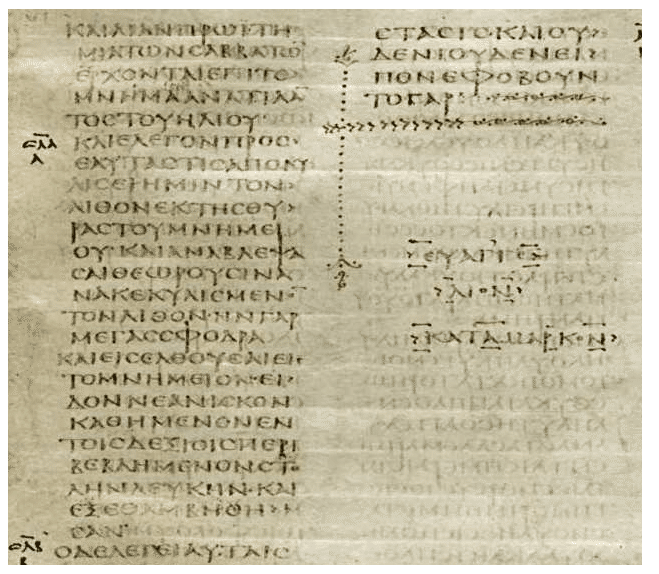 ΚΑΙΛΙΑΝΠΡΩΙΤΗ
ΜΙΑΤΩΝϹΑΒΒΑΤΩ̅
ΕΡΧΟΝΤΑΙΕΠΙΤΟ
ΜΝΗΜΑΑΝΑΤΙΛΑ̅
ΤΟϹΤΟΥΗΛΙΟΥ
ϹΛΑ
Α
ΚΑΙΕΛΕΓΟΝΠΡΟϹ
ΕΑΥΤΑϹΤΙϹΑΠΟΚΥ
ΛΙϹΕΙΗΜΙΝΤΟΝ
ΛΙΘΟΝΕΚΤΗϹΘΥ
ΡΑϹΤΟΥΜΝΗΜΕΙ
ΟΥ·ΚΑΙΑΝΑΒΛΕΨΑ
ϹΑΙΘΕΩΡΟΥϹΙΝΑ
ΝΑΚΕΚΥΛΙϹΜΕΝ
ΤΟΝΛΙΘΟΝ·ΗΝΓΑΡ
ΜΕΓΑϹϹΦΟΔΡΑ
ΚΑΙΕΙϹΕΛΘΟΥϹΑΙΕΙϹ
ΤΟΜΝΗΜΕΙΟΝ·ΕΙ
ΔΟΝΝΕΑΝΙϹΚΟΝ
ΚΑΘΗΜΕΝΟΝΕΝ
ΤΟΙϹΔΕΞΙΟΙϹΠΕΡΙ
ΒΕΒΛΗΜΕΝΟΝϹΤΟ
ΛΗΝΛΕΥΚΗΝ·ΚΑΙ
ΕΞΕΘΑΜΒΗΘΗ
ϹΑΝ
ϹΛΒ
Β
ΟΔΕΛΕΓΕΙΑΥΤΑΙϹ
ϹΤΑϹΙϹ·ΚΑΙΟΥ
ΔΕΝΙΟΥΔΕΝΕΙ
ΠΟΝΕΦΟΒΟΥΝ
ΤΟΓΑΡ
ΕΥΑΓΓΕ
ΛΙΟΝ
ΚΑΤΑΜΑΡΚΟΝ